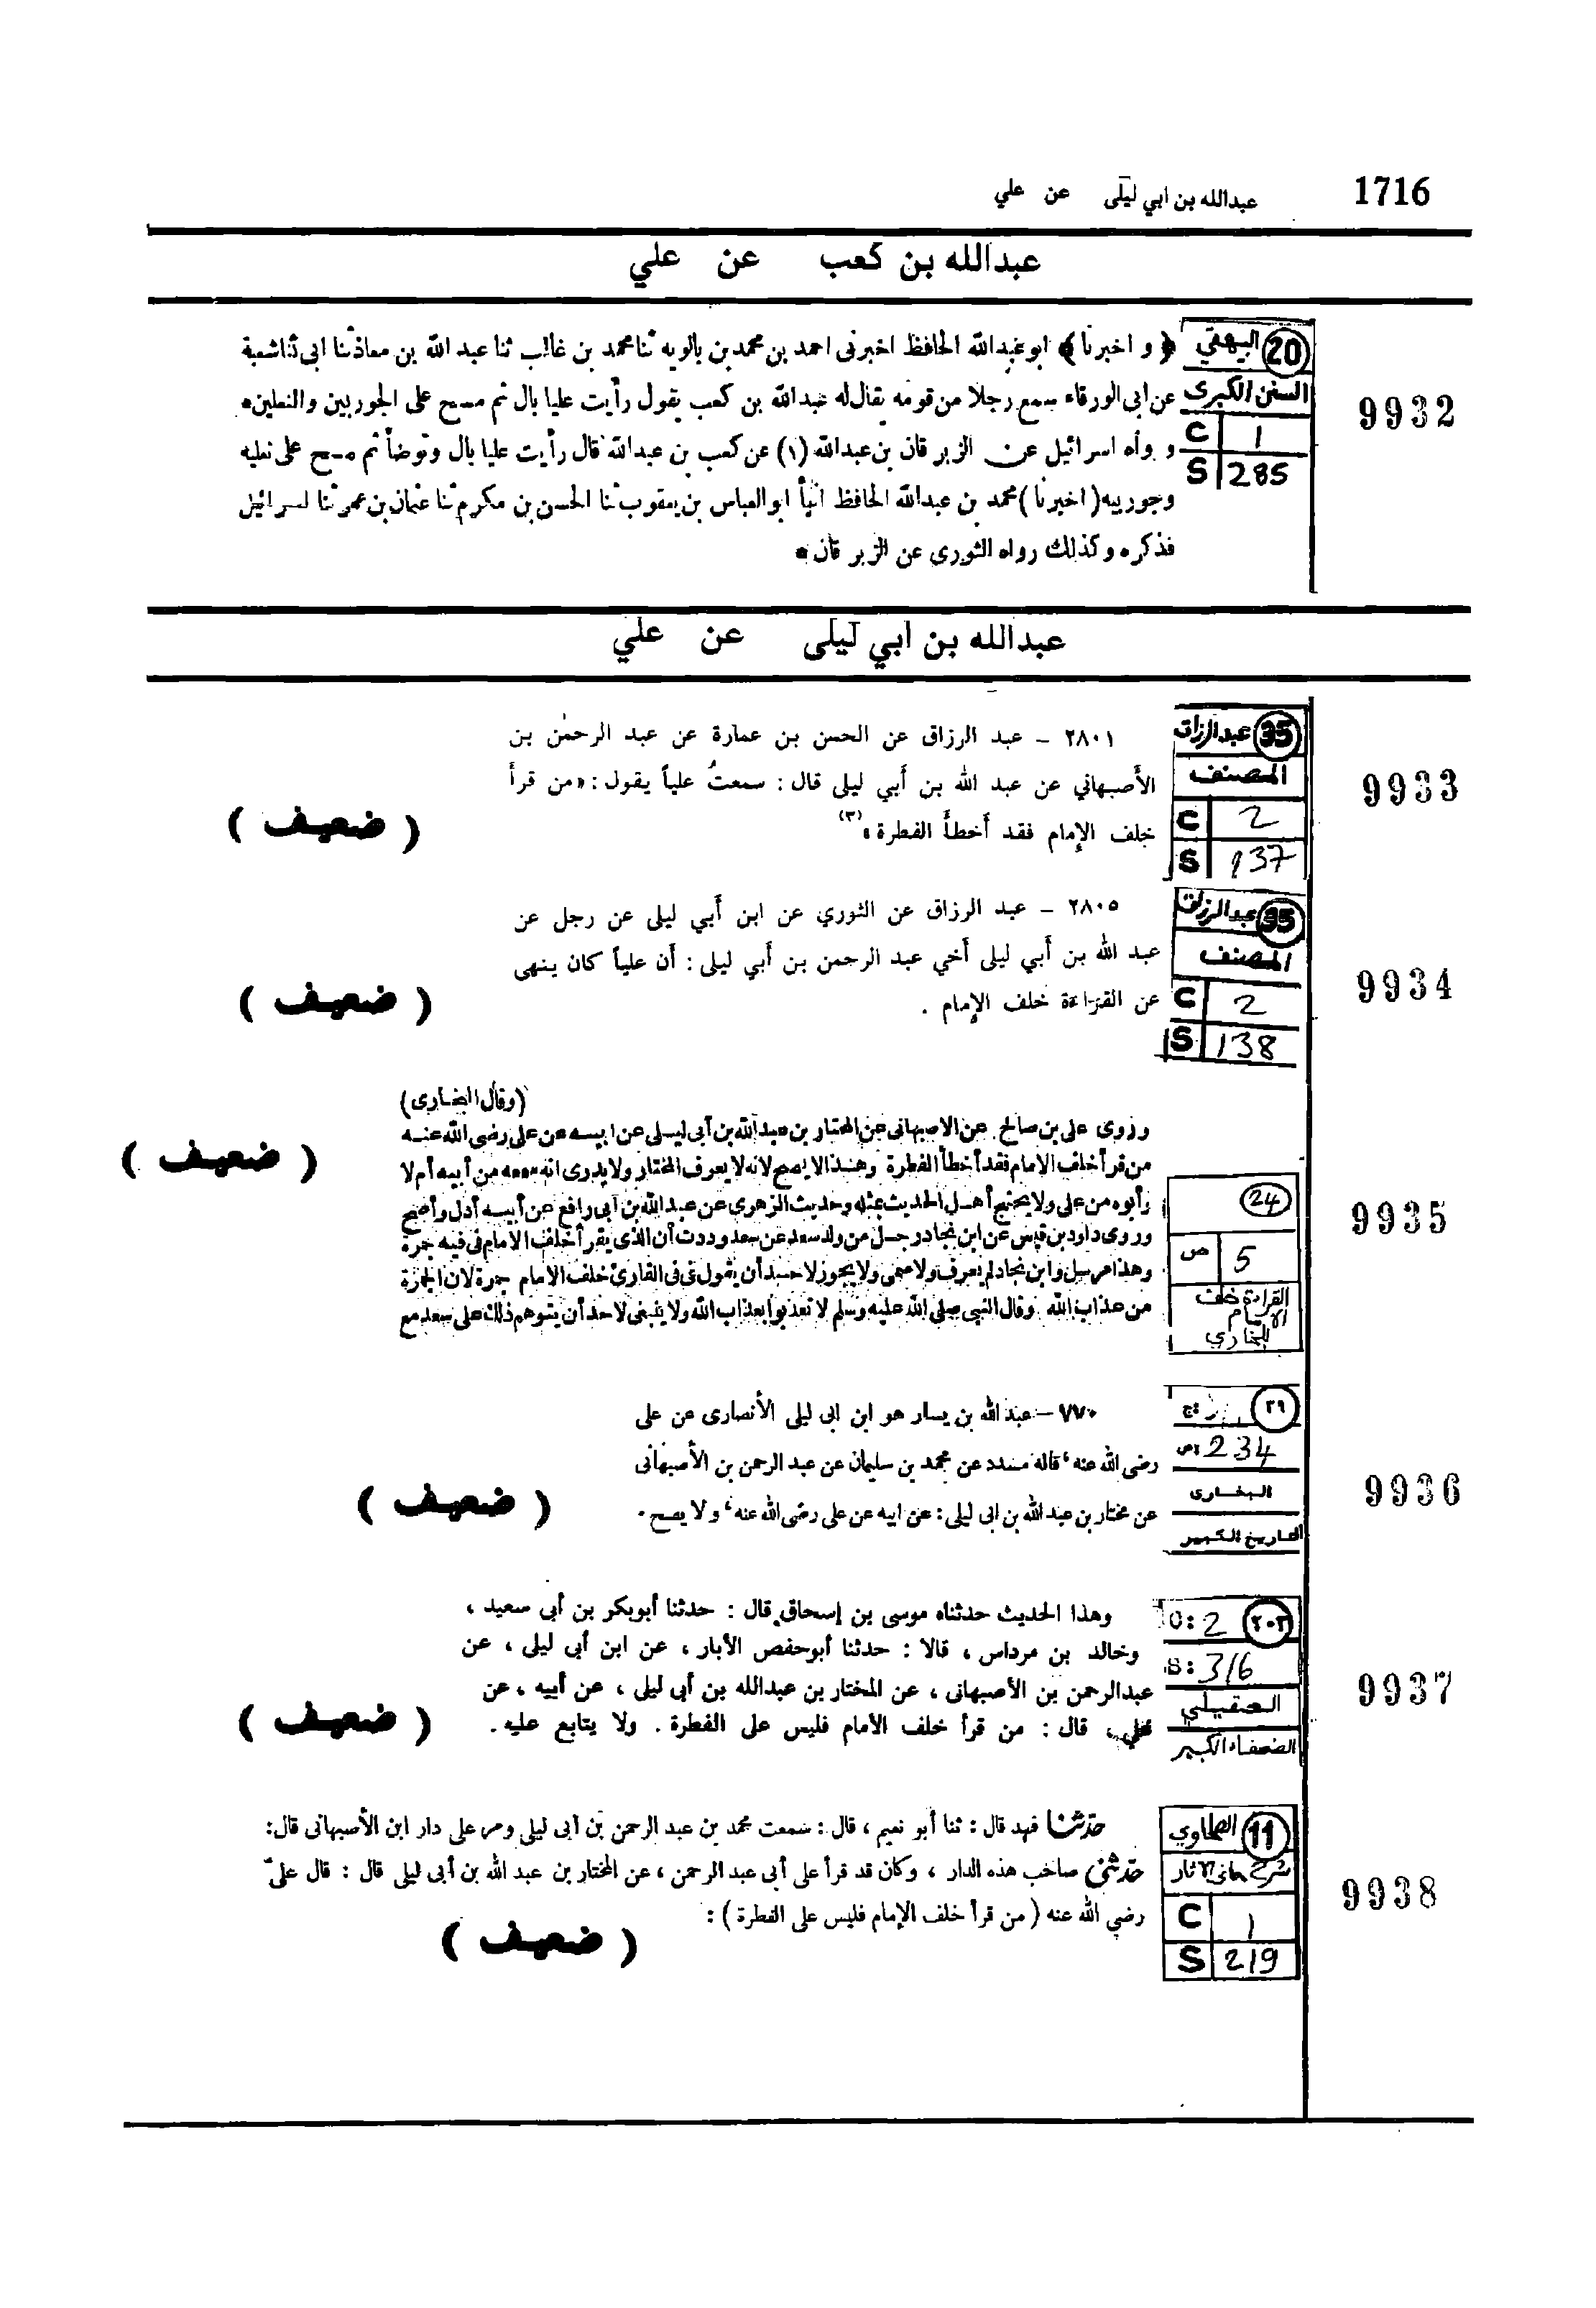 1716
عبدالله بن ابي ليلى عن علي
عبدالله بن كعب عن علي
20 البيهقي
السنن الكبرى
C 1
S 285
9932
﴿ و اخبرنا ﴾ ابو عبدالله الحافظ اخبرنى احمد بن محمد بن بالويه ثنا محمد بن غالب ثنا عبد الله بن معاذ ثنا ابى ثنا شعبة
عن ابى الورقاء سمع رجلا من قومه يقال له عبدالله بن كعب يقول رأيت عليا بال ثم مسح على الجوربين والنعلين •
و رواه اسرائيل عن الزبرقان بن عبدالله (١) عن كعب بن عبدالله قال رأيت عليا بال وتوضأ ثم مسح على نعليه
وجوربيه (اخبرنا) محمد بن عبدالله الحافظ انبأ ابو العباس بن يعقوب ثنا الحسن بن مكرم ثنا عثمان بن عمر ثنا اسرائيل
فذكره وكذلك رواه الثورى عن الزبرقان •
عبدالله بن ابي ليلى عن علي
35 عبدالرزاق
المصنف
C 2
S 137
9933
٢٨٠١ – عبد الرزاق عن الحسن بن عمارة عن عبد الرحمن بن
الأصبهاني عن عبد الله بن أبي ليلى قال : سمعتُ علياً يقول : «من قرأ
خلف الإمام فقد أخطأ الفطرة» (٣)
( ضعيف )
35 عبدالرزاق
المصنف
C 2
S 138
9934
٢٨٠٥ – عبد الرزاق عن الثوري عن ابن أبي ليلى عن رجل عن
عبد الله بن أبي ليلى أخي عبد الرحمن بن أبي ليلى : أن علياً كان ينهى
عن القراءة خلف الإمام .
( ضعيف )
24
ص 5
القراءة خلف
الامام
للبخاري
9935
(وقال البخارى)
وروى على بن صالح عن الاصبهانى عن المختار بن عبدالله بن أبى ليلى عن ابيه عن على رضى الله عنه
من قرأ خلف الامام فقد أخطأ الفطرة وهذا لا يصح لانه لا يعرف المختار ولا يدرى انه سمعه من أبيه أم لا
وأبوه من على ولا يحتج أهل الحديث بمثله وحديث الزهرى عن عبدالله بن أبى رافع عن أبيه أدل وأصح
وروى داود بن قيس عن ابن نجاد رجل من ولد سعد عن سعد وددت أن الذى يقرأ خلف الامام فى فيه جرة
وهذا مرسل وابن نجاد لم يعرف ولا سمى ولا يجوز لاحد أن يقول فى فى القارئ خلف الامام جمرة لان الجمرة
من عذاب الله وقال النبى صلى الله عليه وسلم لا تعذبوا بعذاب الله ولا ينبغى لاحد أن يتوهم ذلك على سعد مع
( ضعيف )
٢٩
ج:
ص: 234
البخارى
التاريخ الكبير
9936
٧٧٠ – عبد الله بن يسار هو ابن ابى ليلى الأنصارى عن على
رضى الله عنه، قاله مسدد عن محمد بن سليمان عن عبد الرحمن بن الأصبهانى
عن مختار بن عبد الله بن ابى ليلى : عن ابيه عن على رضى الله عنه، ولا يصح .
( ضعيف )
٢٠٣
C: 2
S: 316
العقيلي
الضعفاء الكبير
9937
وهذا الحديث حدثناه موسى بن إسحاق قال : حدثنا أبوبكر بن أبى سعيد ،
وخالد بن مرداس ، قالا : حدثنا أبوحفص الأبار ، عن ابن أبى ليلى ، عن
عبدالرحمن بن الأصبهانى ، عن المختار بن عبدالله بن أبى ليلى ، عن أبيه ، عن
على ، قال : من قرأ خلف الأمام فليس على الفطرة . ولا يتابع عليه .
( ضعيف )
11 الطحاوي
شرح معاني الآثار
C 1
S 219
9938
حدثنا فهد قال : ثنا أبو نعيم ، قال : سمعت محمد بن عبد الرحمن بن أبى ليلى ومر على دار ابن الأصبهانى قال :
حدثنى صاحب هذه الدار ، وكان قد قرأ على أبى عبد الرحمن ، عن المختار بن عبد الله بن أبى ليلى قال : قال علىّ
رضي الله عنه ( من قرأ خلف الإمام فليس على الفطرة ) :
( ضعيف )